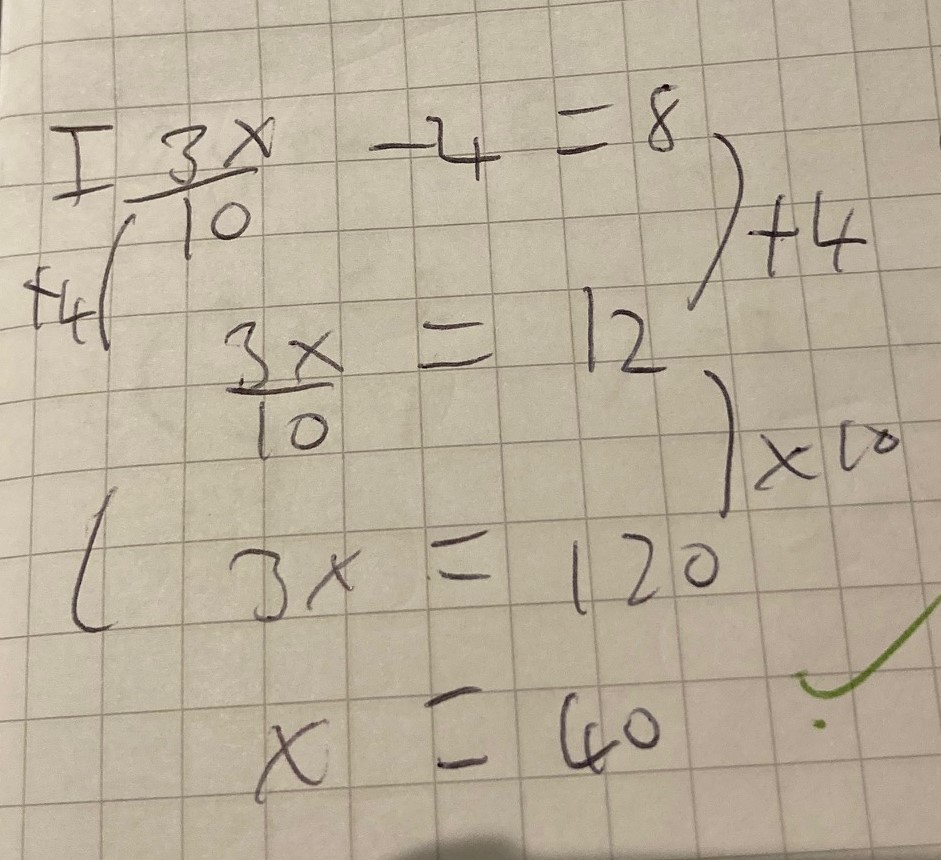 I 3x/10 -4 = 8
+4 +4
3x/10 = 12
x10
3x = 120
x = 40